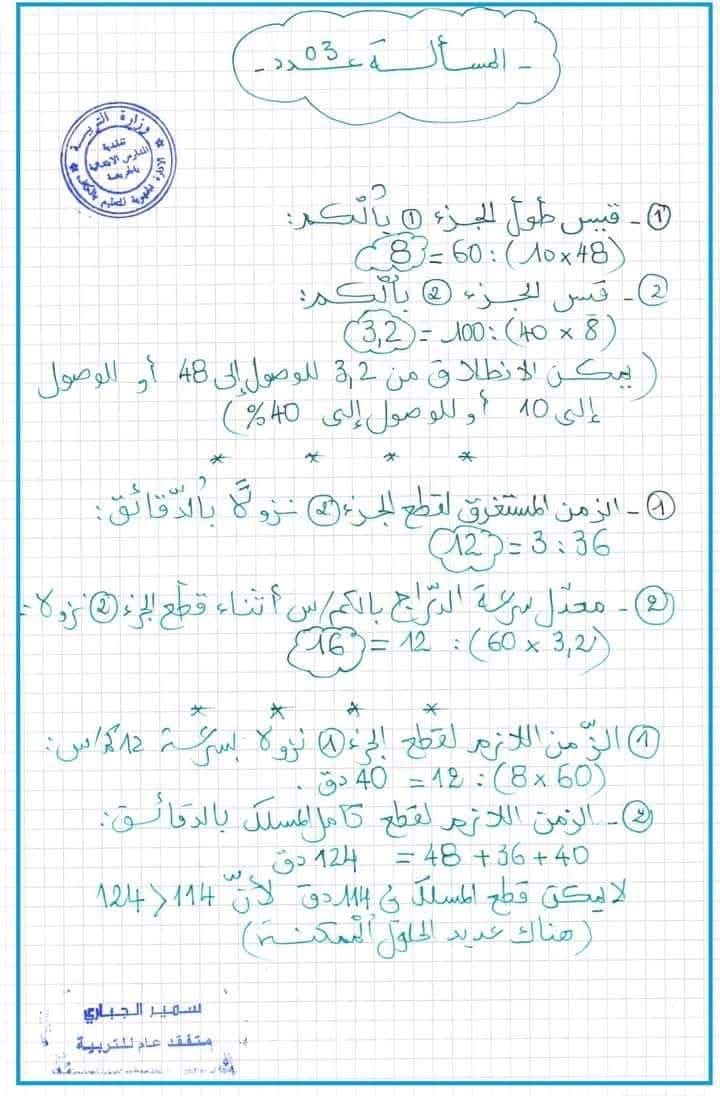 - المسألة عدد 03 -
وزارة التربية
1 - قيس طول الجزء 1 بالكم:
(48×10) : 60 = 8
2 - قيس الجزء 2 بالكم:
(8 × 40) : 100 = 3,2
(يمكن الانطلاق من 3,2 للوصول إلى 48 أو الوصول
إلى 10 أو للوصول إلى 40%)
* * * *
1 - الزمن المستغرق لقطع الجزء 2 نزولًا بالدّقائق:
36 : 3 = 12
2 - معدّل سرعة الدّرّاج بالكم/س أثناء قطع الجزء 2 نزولا:
(3,2 × 60) : 12 = 16
* * * *
1 الزّمن اللازم لقطع الجزء 1 نزولا بسرعة 12كم/س:
(60×8) : 12 = 40 دق.
2 - الزمن اللازم لقطع كامل المسلك بالدقائق:
40 + 36 + 48 = 124 دق
لا يمكن قطع المسلك في 114 دق لأنّ 114 < 124
(هناك عديد الحلول الممكنة)
سمير الجباري
متفقد عام للتربية